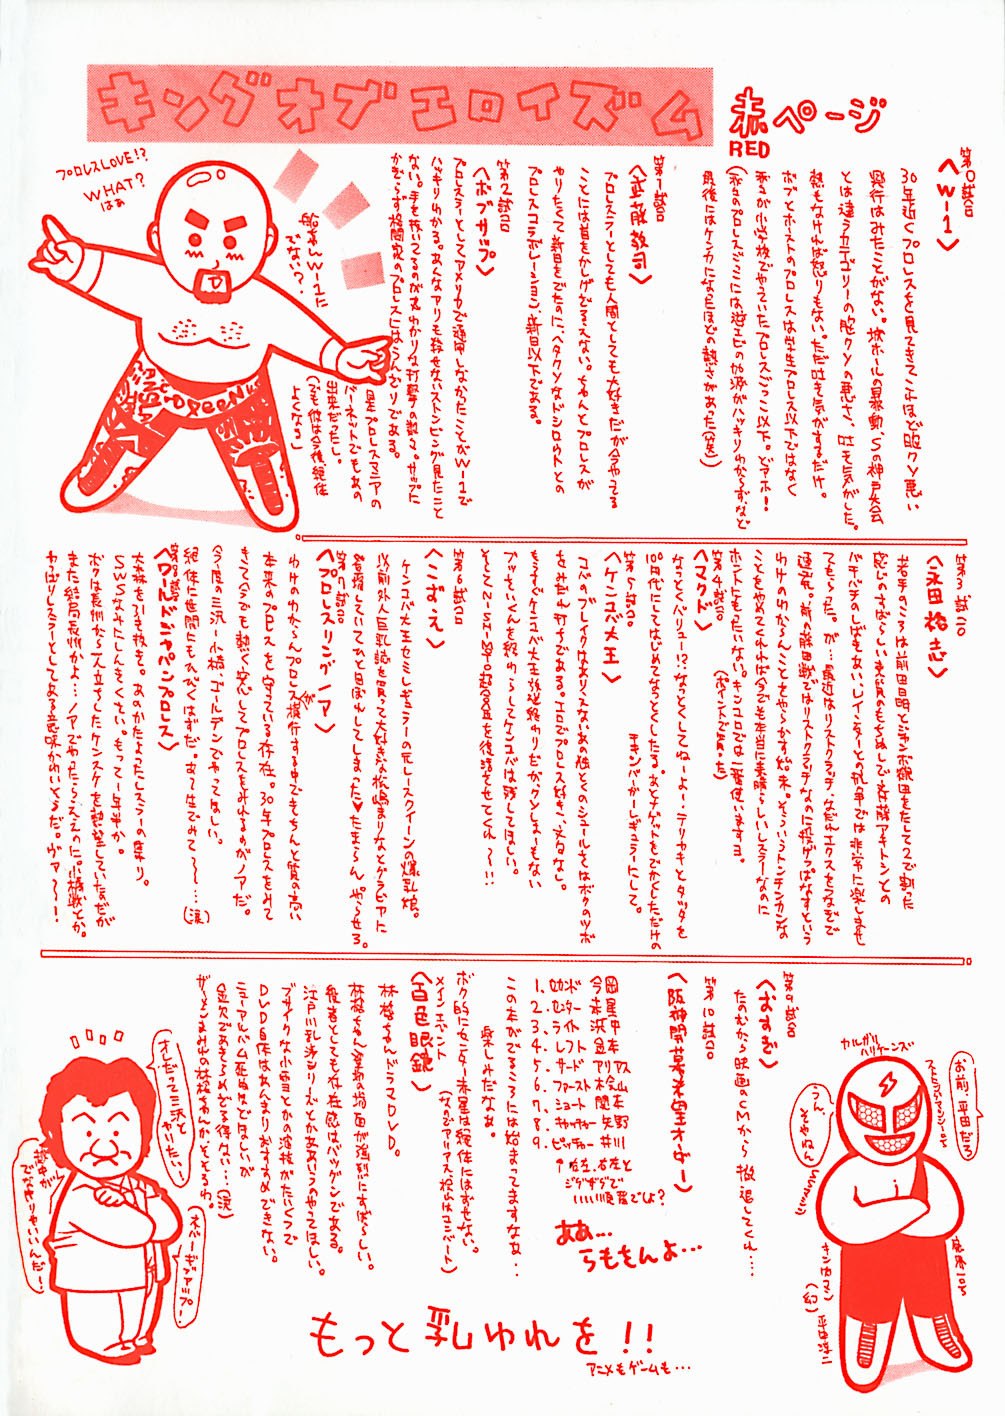 キングオブエロイズム
赤ページ
RED
第0試合
〈W-1〉
30年近くプロレスを見てきてこれほど胸クソ悪い
興行はみたことがない。
とは違うカテゴリーの胸クソの悪さ、吐き気がした。
熱もなければ怒りもない。ただ吐き気がするだけ。
ボブとホーストのプロレスは学生プロレス以下ではなく
我々が小学校でやっていたプロレスごっこ以下。どアホ!
(我々のプロレスごっこには逆エビの加減がハッキリわからず、など
最後にはケンカになるほどの熱さがあった(笑))
第1試合
〈武藤敬司〉
プロレスラーとしても人間としても大好きだが今やってる
ことには首をかしげざるえない。ちゃんとプロレスが
やりたくて新日をでたのに、ヘタクソなドシロウトとの
プロレスコラボレーション、新日以下である。
第2試合
〈ボブサップ〉
プロレスラーとしてアメリカで通用しなかったことがW-1で
ハッキリわかる。あんなアリも殺せないストンピング見たこと
ない。手を抜いてるのが丸わかりな打撃の数々。サップに
かぎらず格闘家のプロレスにはうんざりである。
(是プロレスマニアの
バーネットでもあの
出来だったし。
でも彼は今後絶体
よくなる)
プロレスLOVE!?
WHAT?
はぁ
船木んW-1に
でない?
第3試合
〈永田裕志〉
若手のころは前田日明とジャンボ鶴田をたして2で割った
感じのすばらしい素質のもちぬしで、斉藤アキトシとの
バチバチのしばきあい、レインジャーとの抗争では非常に楽しませ
てもらった。が…最近はリストクラッチ、なだれエクスをつなぎで
連発。秋の藤田戦ではリストクラッチなのに投げっぱなすという
わけのわからんことさせやらかす始末。そういうトンチンカンな
ことをやめてくれれば今でも本当に素晴らしいレスラーなのに
第4試合
〈マクド〉
ホントにもったいない。キンエロでは一番使いますヨ。
(ポイントで買った)
なっとくバリュー!?なっとくしてねーよ!テリヤキとタッタを
100円代にしてはじめてなっとくしたる。
チキンバーガーレギュラーにして。
第5試合
〈ケンコバ大王〉
コバのブレイクはありえないあの他とのシュールさはボクのツボ
をみだれ打ちである。エロでプロレス好き、文句なし。
もうすぐケンコバ大王放送終わりだがクソしょーもない
ブッキいくんを終わらしてケンコバは残してほしい。
そして
を復活させてくれ〜!!
第6試合
〈こずえ〉
ケンコバ大王セミレギュラーの元レースクイーンの爆乳娘。
以前外人巨乳誌を買って大好きな松嶋まりなとグラビアに
登場していてひと目ぼれしてしまった♥たまら〜ん やらせろ。
第7試合
〈プロレスリングノア〉
わけのわからんプロレス横行する中でもちゃんと質の高い
本来のプロレスを守っている存在。30年プロレスをみて
きて今でも熱く安心してプロレスをみれるのがノアだ。
今度の三沢-小橋、ゴールデンでやってほしい。
絶体に世間にもひびくはずだ。あぁ生でみて〜…(涙)
第8試合
〈ワールドジャパンプロレス〉
大森を引き抜き。あのかたよったレスラーの集り。
SWSなみにしんきくさい。もって一年半か。
ボクは長州から一人立ちしたケンスケを熱望していたのだが
また結局長州かよ…ノアでやったらええのに。小橋戦とか。
やっぱりレスラーとしてある意味かめいそうだ。ヴァ〜ー!
第9試合
〈おすぎ〉
たのむから映画のCMから撤退してくれ…
第10試合
〈阪神開幕希望オーダー〉
1. セカンド 今岡
2. センター 赤星
3. ライト 浜中
4. レフト 金本
5. サード アリアス
6. ファースト 桧山
7. ショート 関本
8. キャッチャー 矢野
9. ピッチャー 井川
↑右左、右左と
ジグザグで
いい打順でしょ?
あぁ…
らももんよ…
この本がでるころには始まってますなぁ…
楽しみだなぁ。
ボク的に2番赤星は絶体にはずせない。
メインエベント
〈百色眼鏡〉
林檎ちゃんドラマDVD。
林檎ちゃん登場の場面が強烈にすばらしい。
役者としても存在感はバツグンである。
江戸川乱歩シリーズとかああいうのやってほしい。
ブサイクな小雪とかの演技がたいくつで
DVD自体はあんまりおすすめできない。
ニューアルバム在ぬほどほしいが
金欠であきらめざるを得ない…(涙)
ザーメンまみれの林檎ちゃんかぁそそるわ。
オレだって三沢と
やりたい…!
ネバーギブアップ!
越中が
でなきゃいいんだー!
カルガリー
ハリケーンズ
お前、平田だろ
うん、
そやねん
(幻)
もっと乳ゆれを!!
アニメもゲームも…